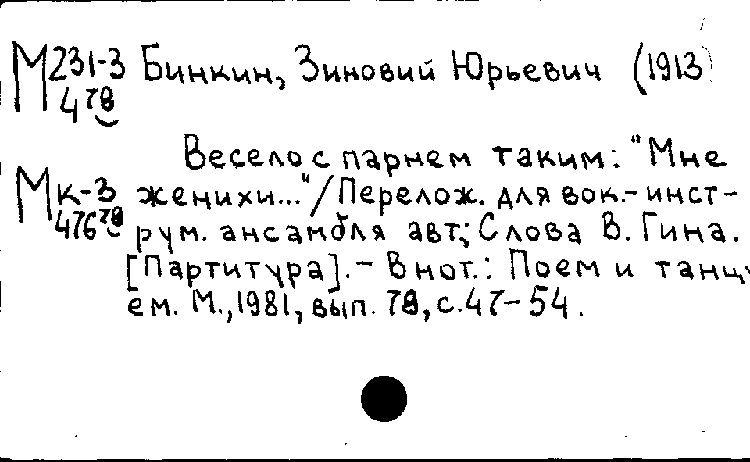 М 231-3 Бинкин, Зиновий Юрьевич (1913)
4 78
Весело с парнем таким: "Мне
Мк-3 женихи..."/Перелож. для вок.-инст-
476 78 рум. ансамбля авт.; Слова В. Гина.
[Партитура]. - В нот.: Поем и танцу
ем. М., 1981, вып. 78, с.47-54.